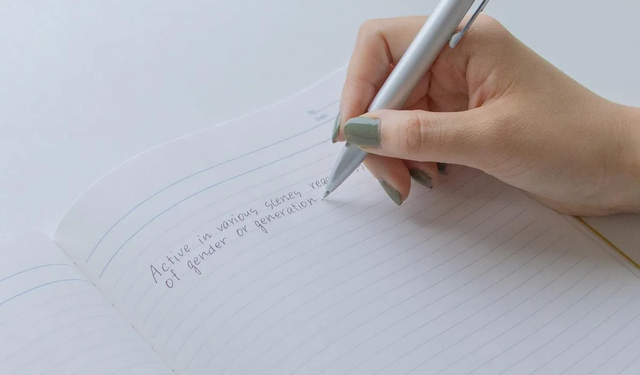 Active in various scenes
of gender or generation